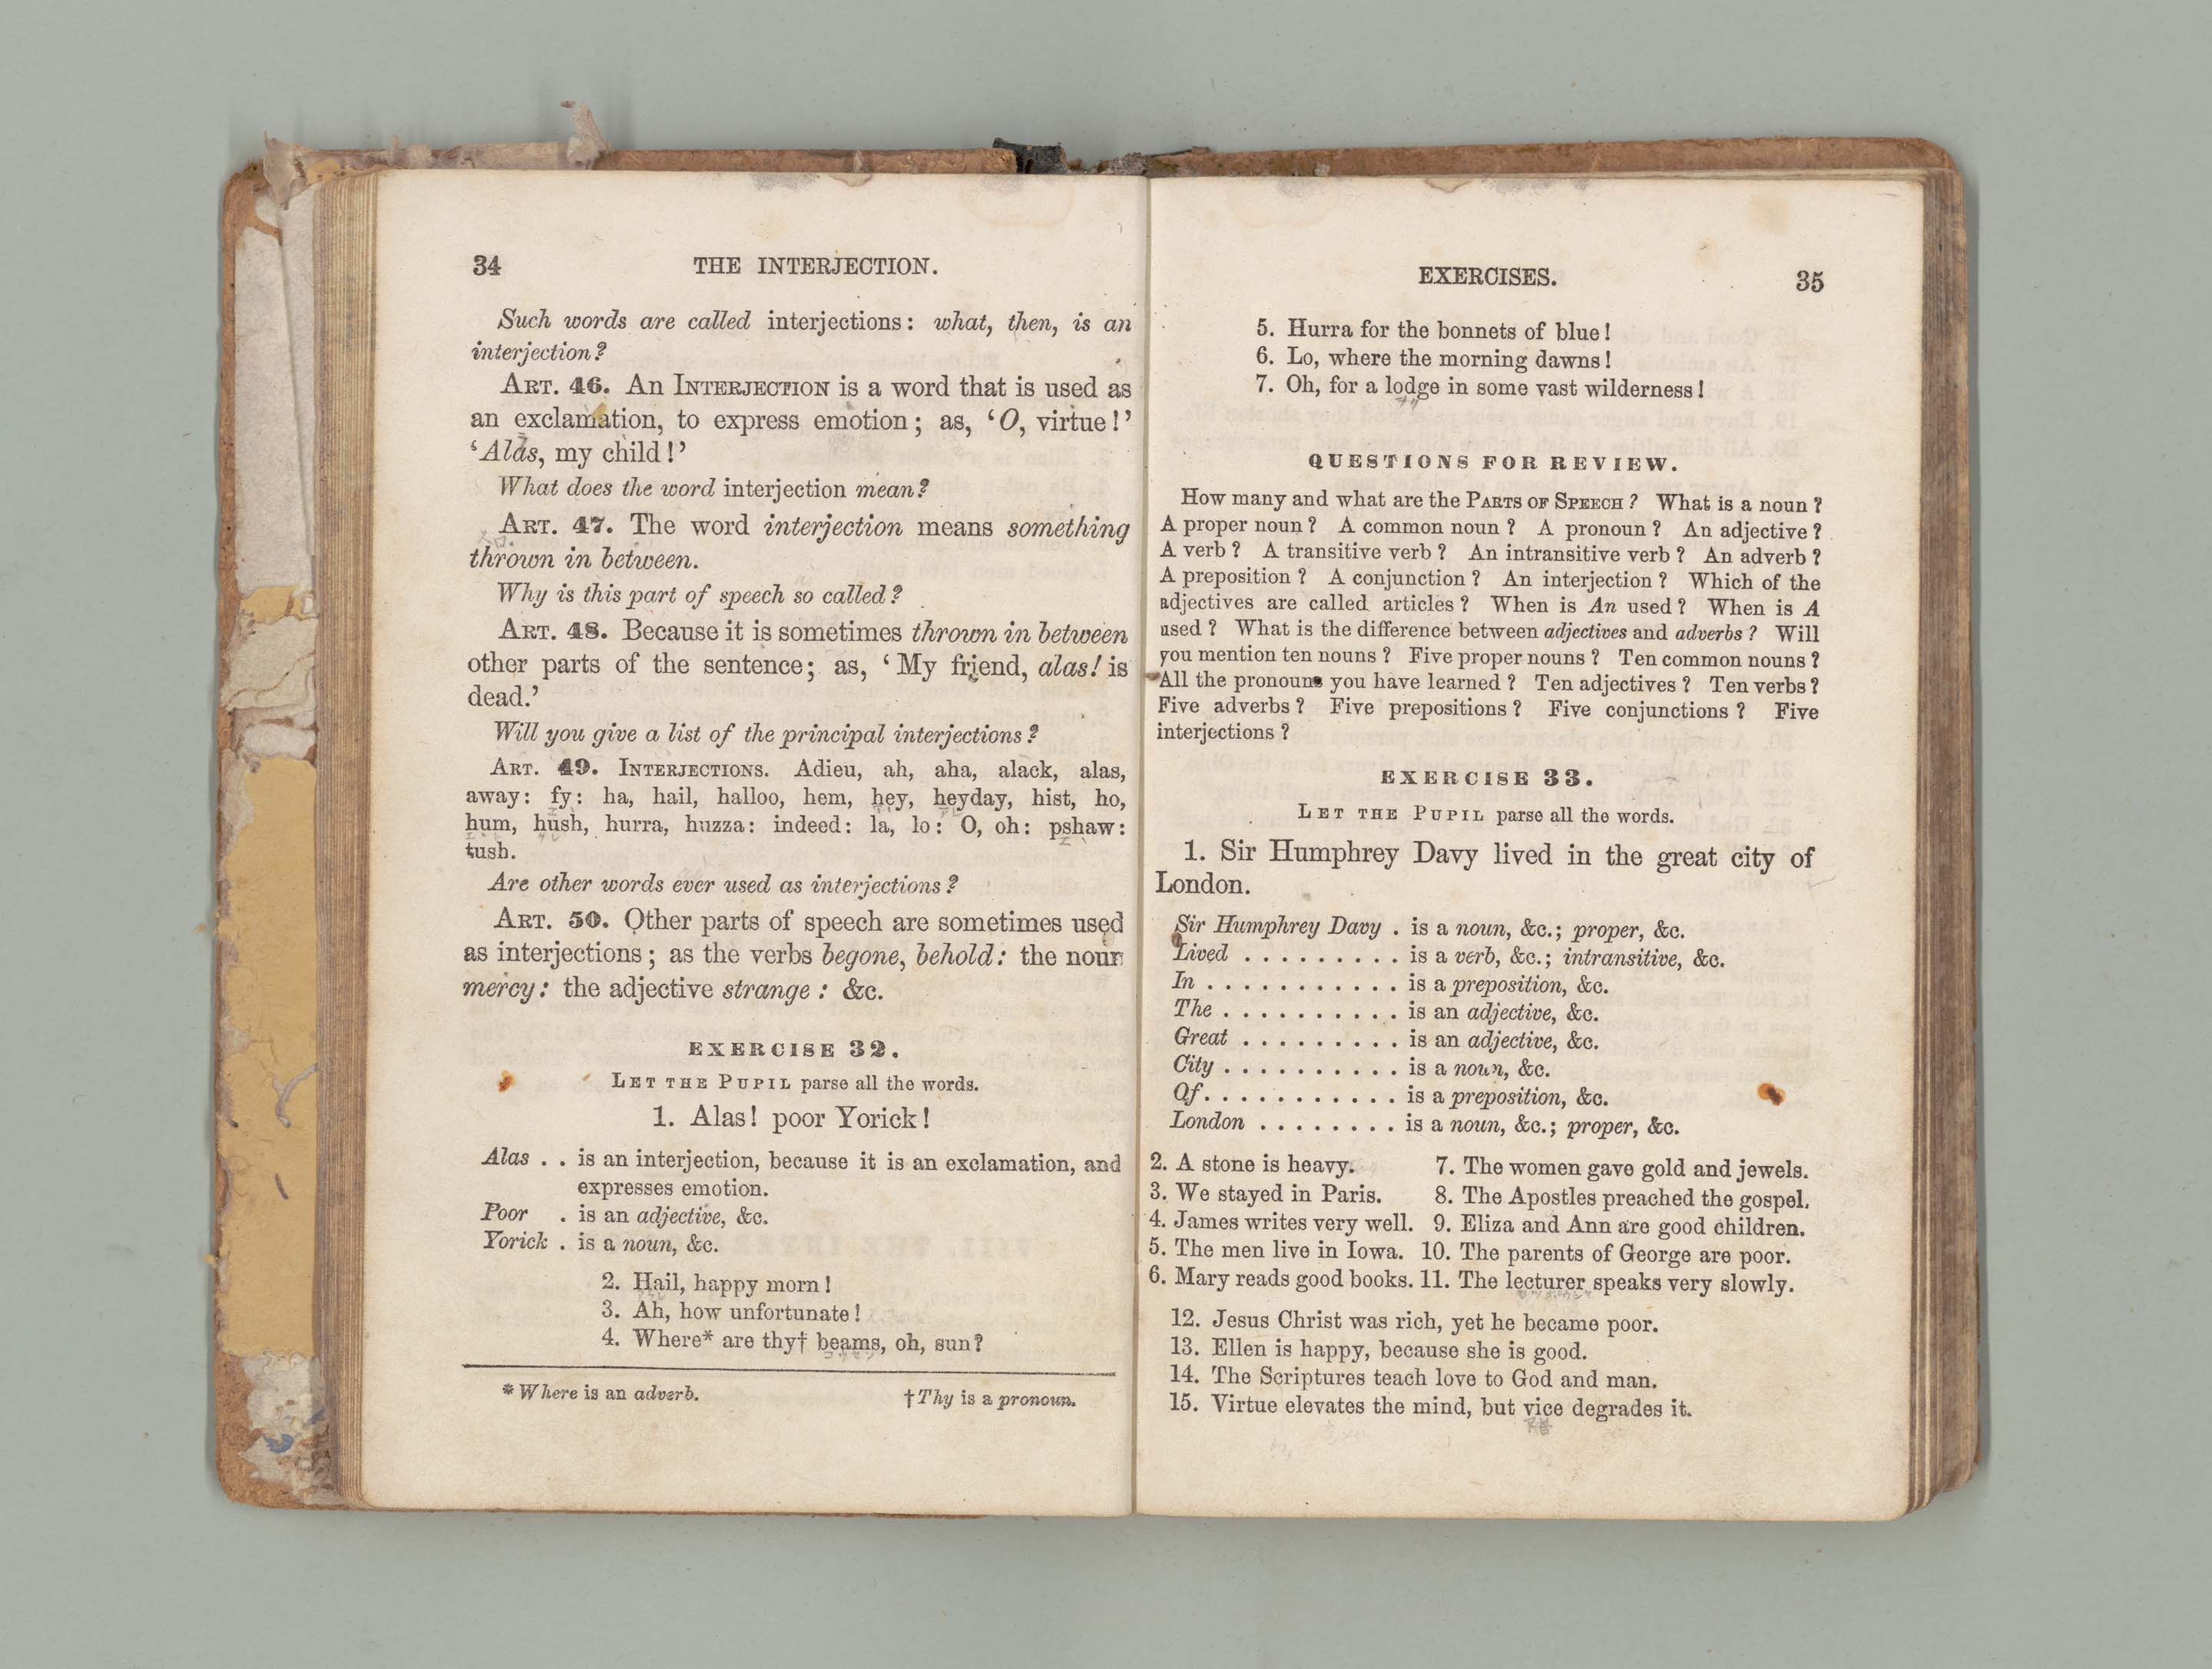 34
THE INTERJECTION.
Such words are called interjections: what, then, is an
interjection?
ART. 46. An INTERJECTION is a word that is used as
an exclamation, to express emotion; as, ‘O, virtue!’
‘Alas, my child!’
What does the word interjection mean?
ART. 47. The word interjection means something
thrown in between.
Why is this part of speech so called?
ART. 48. Because it is sometimes thrown in between
other parts of the sentence; as, ‘My friend, alas! is
dead.’
Will you give a list of the principal interjections?
ART. 49. INTERJECTIONS. Adieu, ah, aha, alack, alas,
away: fy: ha, hail, halloo, hem, hey, heyday, hist, ho,
hum, hush, hurra, huzza: indeed: la, lo: O, oh: pshaw:
tush.
Are other words ever used as interjections?
ART. 50. Other parts of speech are sometimes used
as interjections; as the verbs begone, behold: the noun
mercy: the adjective strange: &c.
EXERCISE 32.
LET THE PUPIL parse all the words.
1. Alas! poor Yorick!
Alas . . is an interjection, because it is an exclamation, and
expresses emotion.
Poor . is an adjective, &c.
Yorick . is a noun, &c.
2. Hail, happy morn!
3. Ah, how unfortunate!
4. Where* are thy† beams, oh, sun?
* Where is an adverb. † Thy is a pronoun.
EXERCISES.
35
5. Hurra for the bonnets of blue!
6. Lo, where the morning dawns!
7. Oh, for a lodge in some vast wilderness!
QUESTIONS FOR REVIEW.
How many and what are the PARTS OF SPEECH? What is a noun?
A proper noun? A common noun? A pronoun? An adjective?
A verb? A transitive verb? An intransitive verb? An adverb?
A preposition? A conjunction? An interjection? Which of the
adjectives are called articles? When is An used? When is A
used? What is the difference between adjectives and adverbs? Will
you mention ten nouns? Five proper nouns? Ten common nouns?
All the pronouns you have learned? Ten adjectives? Ten verbs?
Five adverbs? Five prepositions? Five conjunctions? Five
interjections?
EXERCISE 33.
LET THE PUPIL parse all the words.
1. Sir Humphrey Davy lived in the great city of
London.
Sir Humphrey Davy . is a noun, &c.; proper, &c.
Lived . . . . . . . . . is a verb, &c.; intransitive, &c.
In . . . . . . . . . . . is a preposition, &c.
The . . . . . . . . . . is an adjective, &c.
Great . . . . . . . . . is an adjective, &c.
City . . . . . . . . . . is a noun, &c.
Of . . . . . . . . . . . is a preposition, &c.
London . . . . . . . . is a noun, &c.; proper, &c.
2. A stone is heavy. 7. The women gave gold and jewels.
3. We stayed in Paris. 8. The Apostles preached the gospel.
4. James writes very well. 9. Eliza and Ann are good children.
5. The men live in Iowa. 10. The parents of George are poor.
6. Mary reads good books. 11. The lecturer speaks very slowly.
12. Jesus Christ was rich, yet he became poor.
13. Ellen is happy, because she is good.
14. The Scriptures teach love to God and man.
15. Virtue elevates the mind, but vice degrades it.